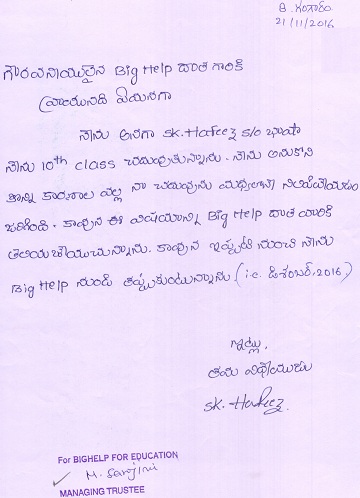 21/11/2016
గౌరవనీయులైన Big Help దాత గారికి
వ్రాయునది ఏమనగా
నేను అనగా SK. Hafeez S/o బాషా
నేను 10th class చదువుతున్నాను. నేను అనుకోని
కొన్ని కారణాల వల్ల నా చదువును మధ్యలోనే నిలిపివేయడం
జరిగింది. కావున ఈ విషయాన్ని Big Help దాత వారికి
తెలియచేయుచున్నాను. కావున ఇప్పటి నుంచి నేను
Big Help నుండి తప్పుకుంటున్నాను. (i.e. డిశంబర్, 2016)
ఇట్లు,
తమ విధేయుడు
SK. Hafeez.
For BIGHELP FOR EDUCATION
M. Sarojini
MANAGING TRUSTEE